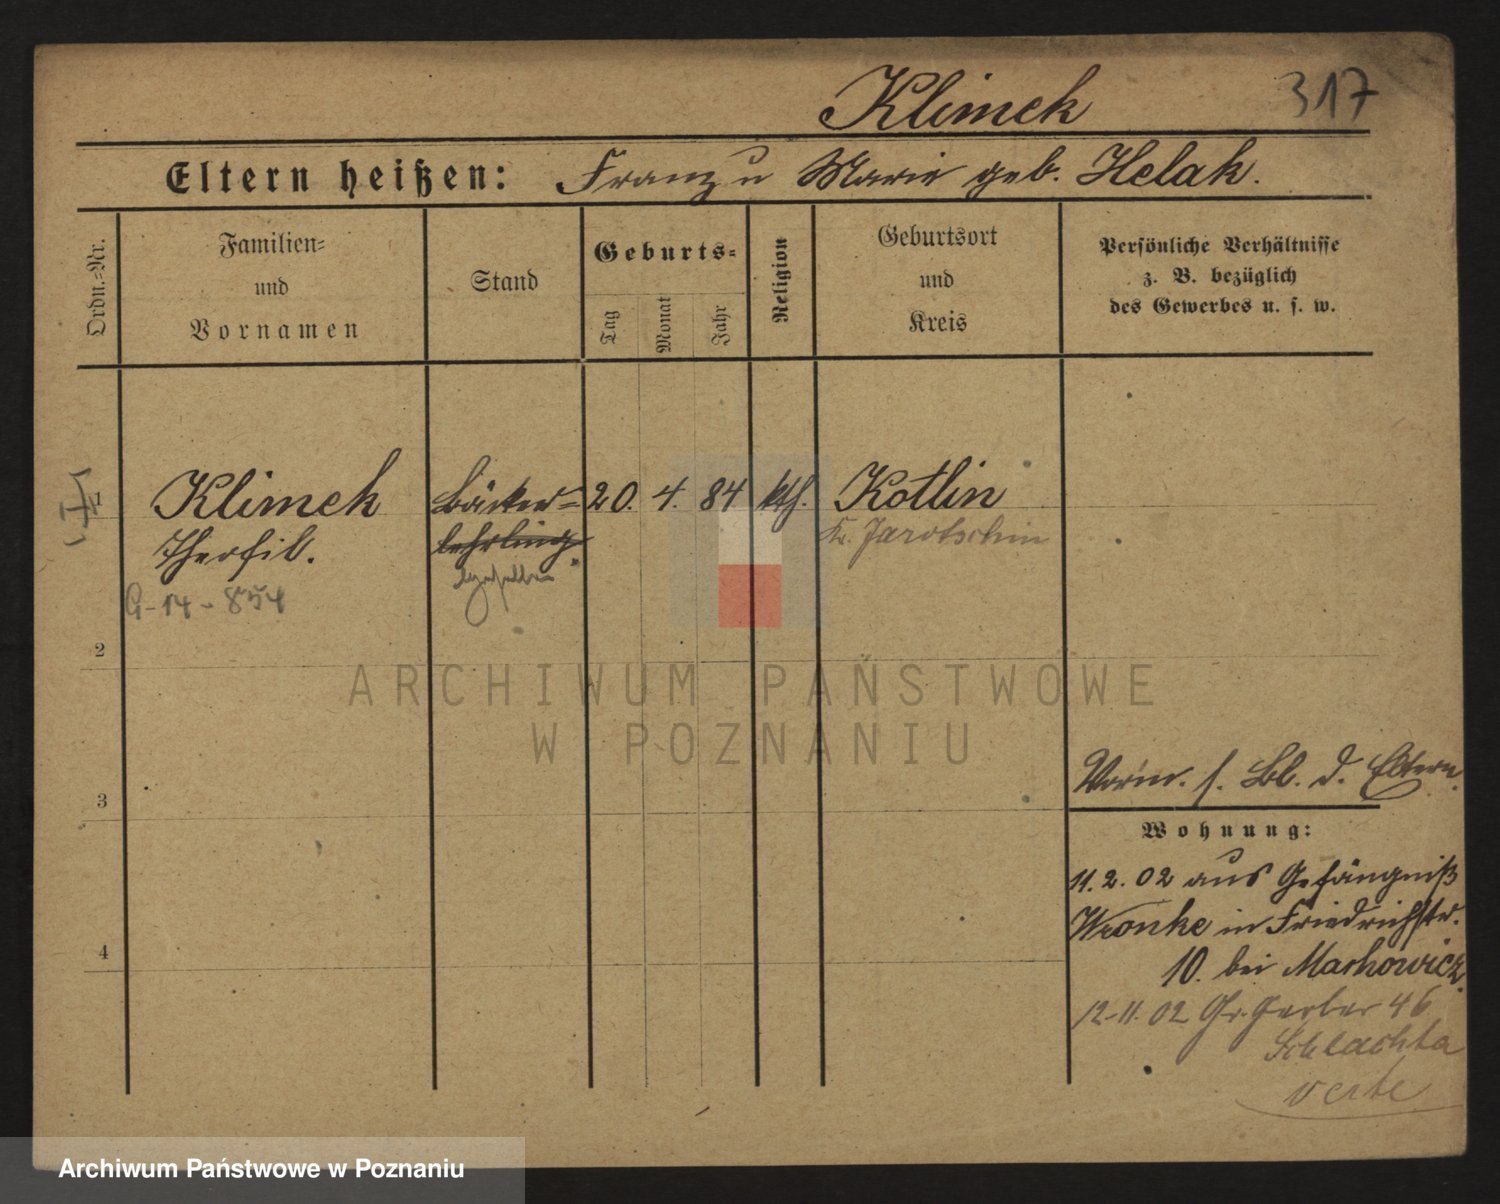 Klimek 317
Eltern heißen: Franz u Marie geb. Helak.
Ordn.=Nr.
Familien=
und
Vornamen
Stand
Geburts=
Tag
Monat
Jahr
Religion
Geburtsort
und
Kreis
Persönliche Verhältnisse
z. B. bezüglich
des Gewerbes u. s. w.
1 Klimek Bäcker= 20. 4. 84 kth. Kotlin
Theofil. lehrling. Kr. Jarotschin
G-14-854 gesellen
2
ARCHIWUM PAŃSTWOWE
W POZNANIU
Vorm. s. Bl. d. Eltern.
3
Wohnung:
11.2.02 aus Gefängniß
Wronke in Friedrichstr.
4
10. bei Markowicz.
12-11.02 Gr. Gerber 46
Schlachta
verte
Archiwum Państwowe w Poznaniu